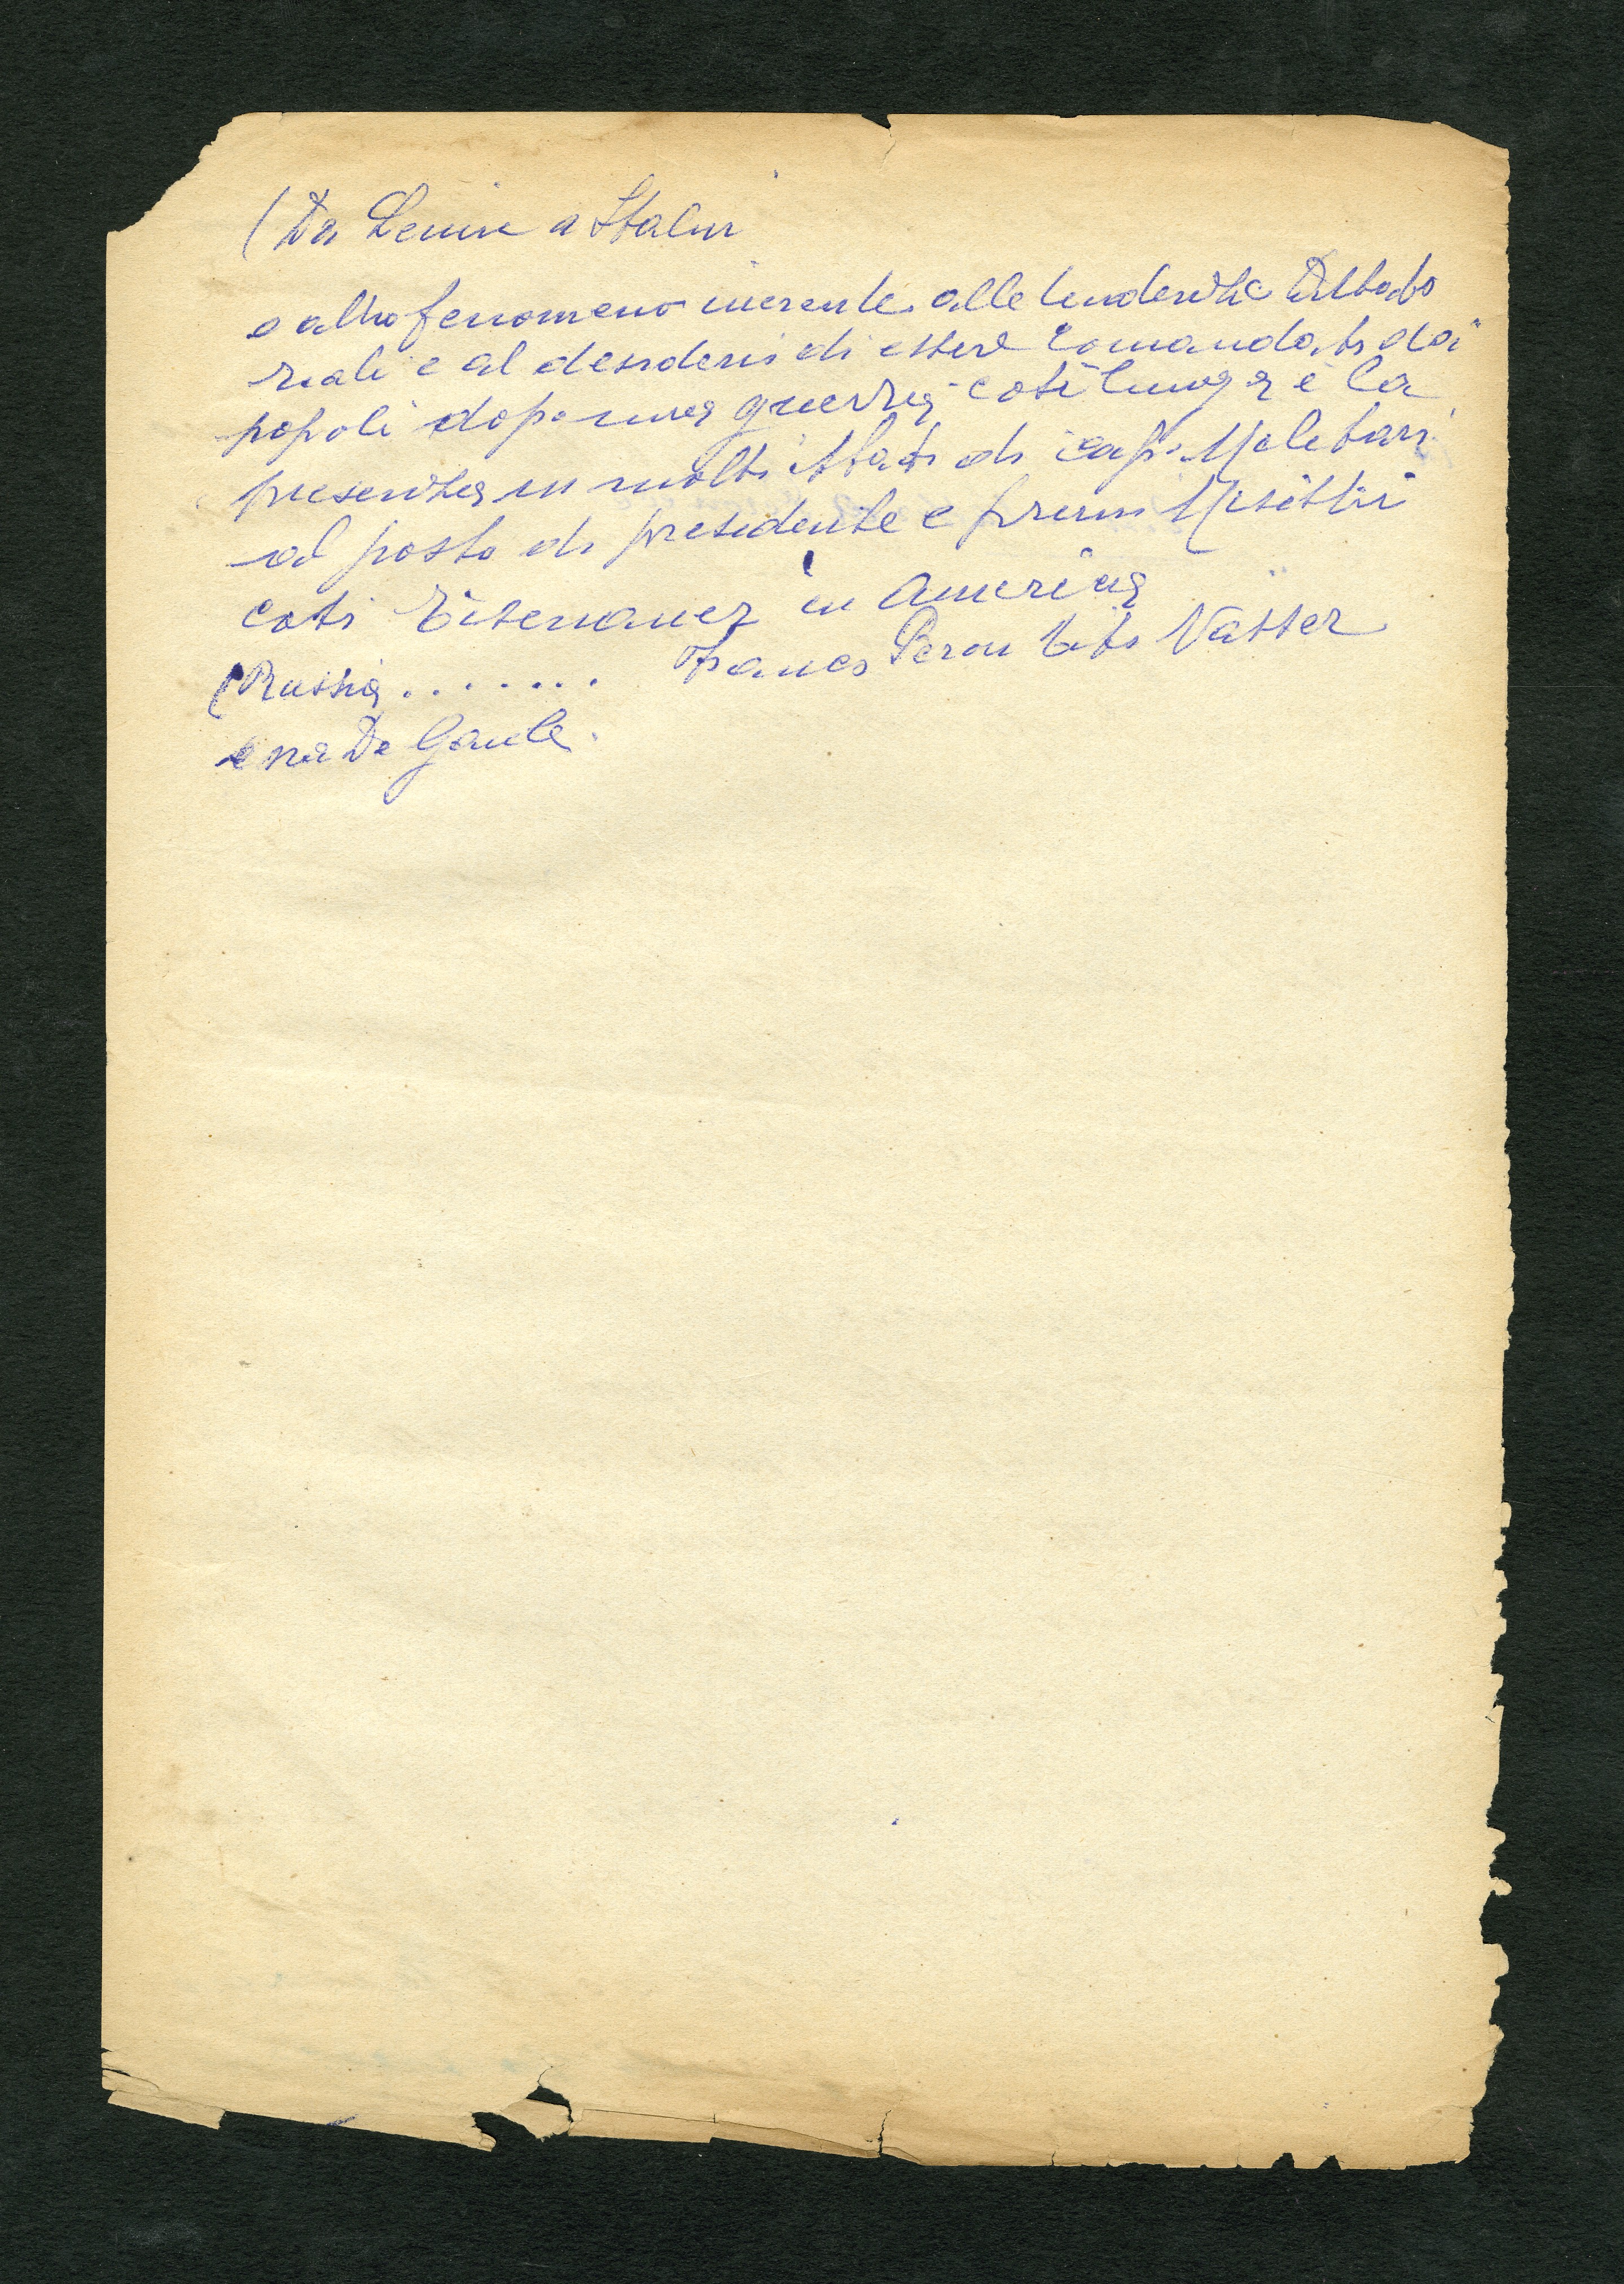 (Da Lenin a Stalin
e altro fenomeno inerente alle tendenze Dittato
riali e al desiderio di essere comandati dai
popoli dopo una guerra così lunga è la
presenza in molti stati di capi Militari
al posto di presidente e primi Misittri
così Eisenauer in America
(Russia ........ Franco Peron Tito Nasser
e ora De Gaule.